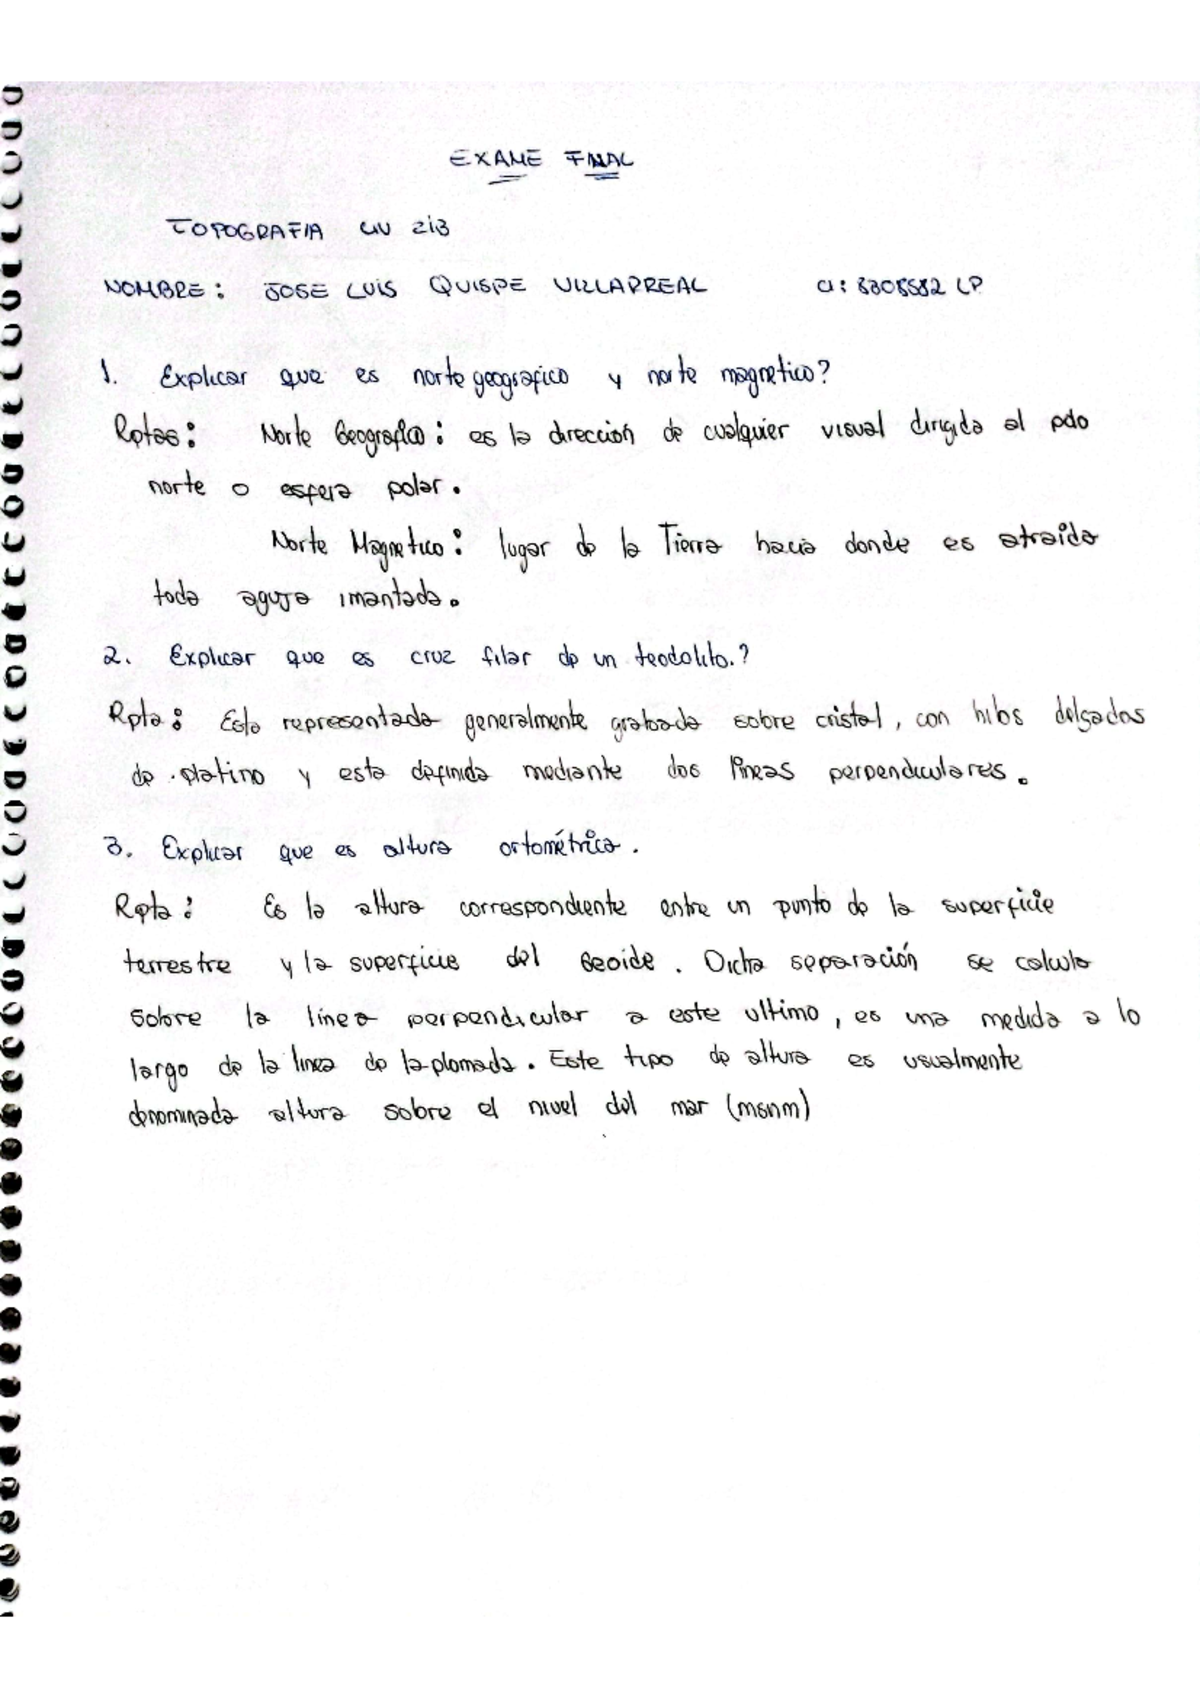 EXAME FINAL
TOPOGRAFIA CIV 213
NOMBRE: JOSE LUIS QUISPE VILLARREAL CI: LP
1. Explicar que es norte geografico y norte magnetico?
Rptas: Norte Geografico: es la dirección de cualquier visual dirigida al polo
norte o esfera polar.
Norte Magnetico: lugar de la Tierra hacia donde es atraida
toda aguja imantada.
2. Explicar que es cruz filar de un teodolito.?
Rpta: Esta representada generalmente grabada sobre cristal, con hilos delgados
de platino y esta definida mediante dos lineas perpendiculares.
3. Explicar que es altura ortométrica.
Rpta: Es la altura correspondiente entre un punto de la superficie
terrestre y la superficie del Geoide. Dicha separación se calcula
sobre la línea perpendicular a este ultimo, es una medida a lo
largo de la linea de la plomada. Este tipo de altura es usualmente
denominada altura sobre el nivel del mar (msnm)